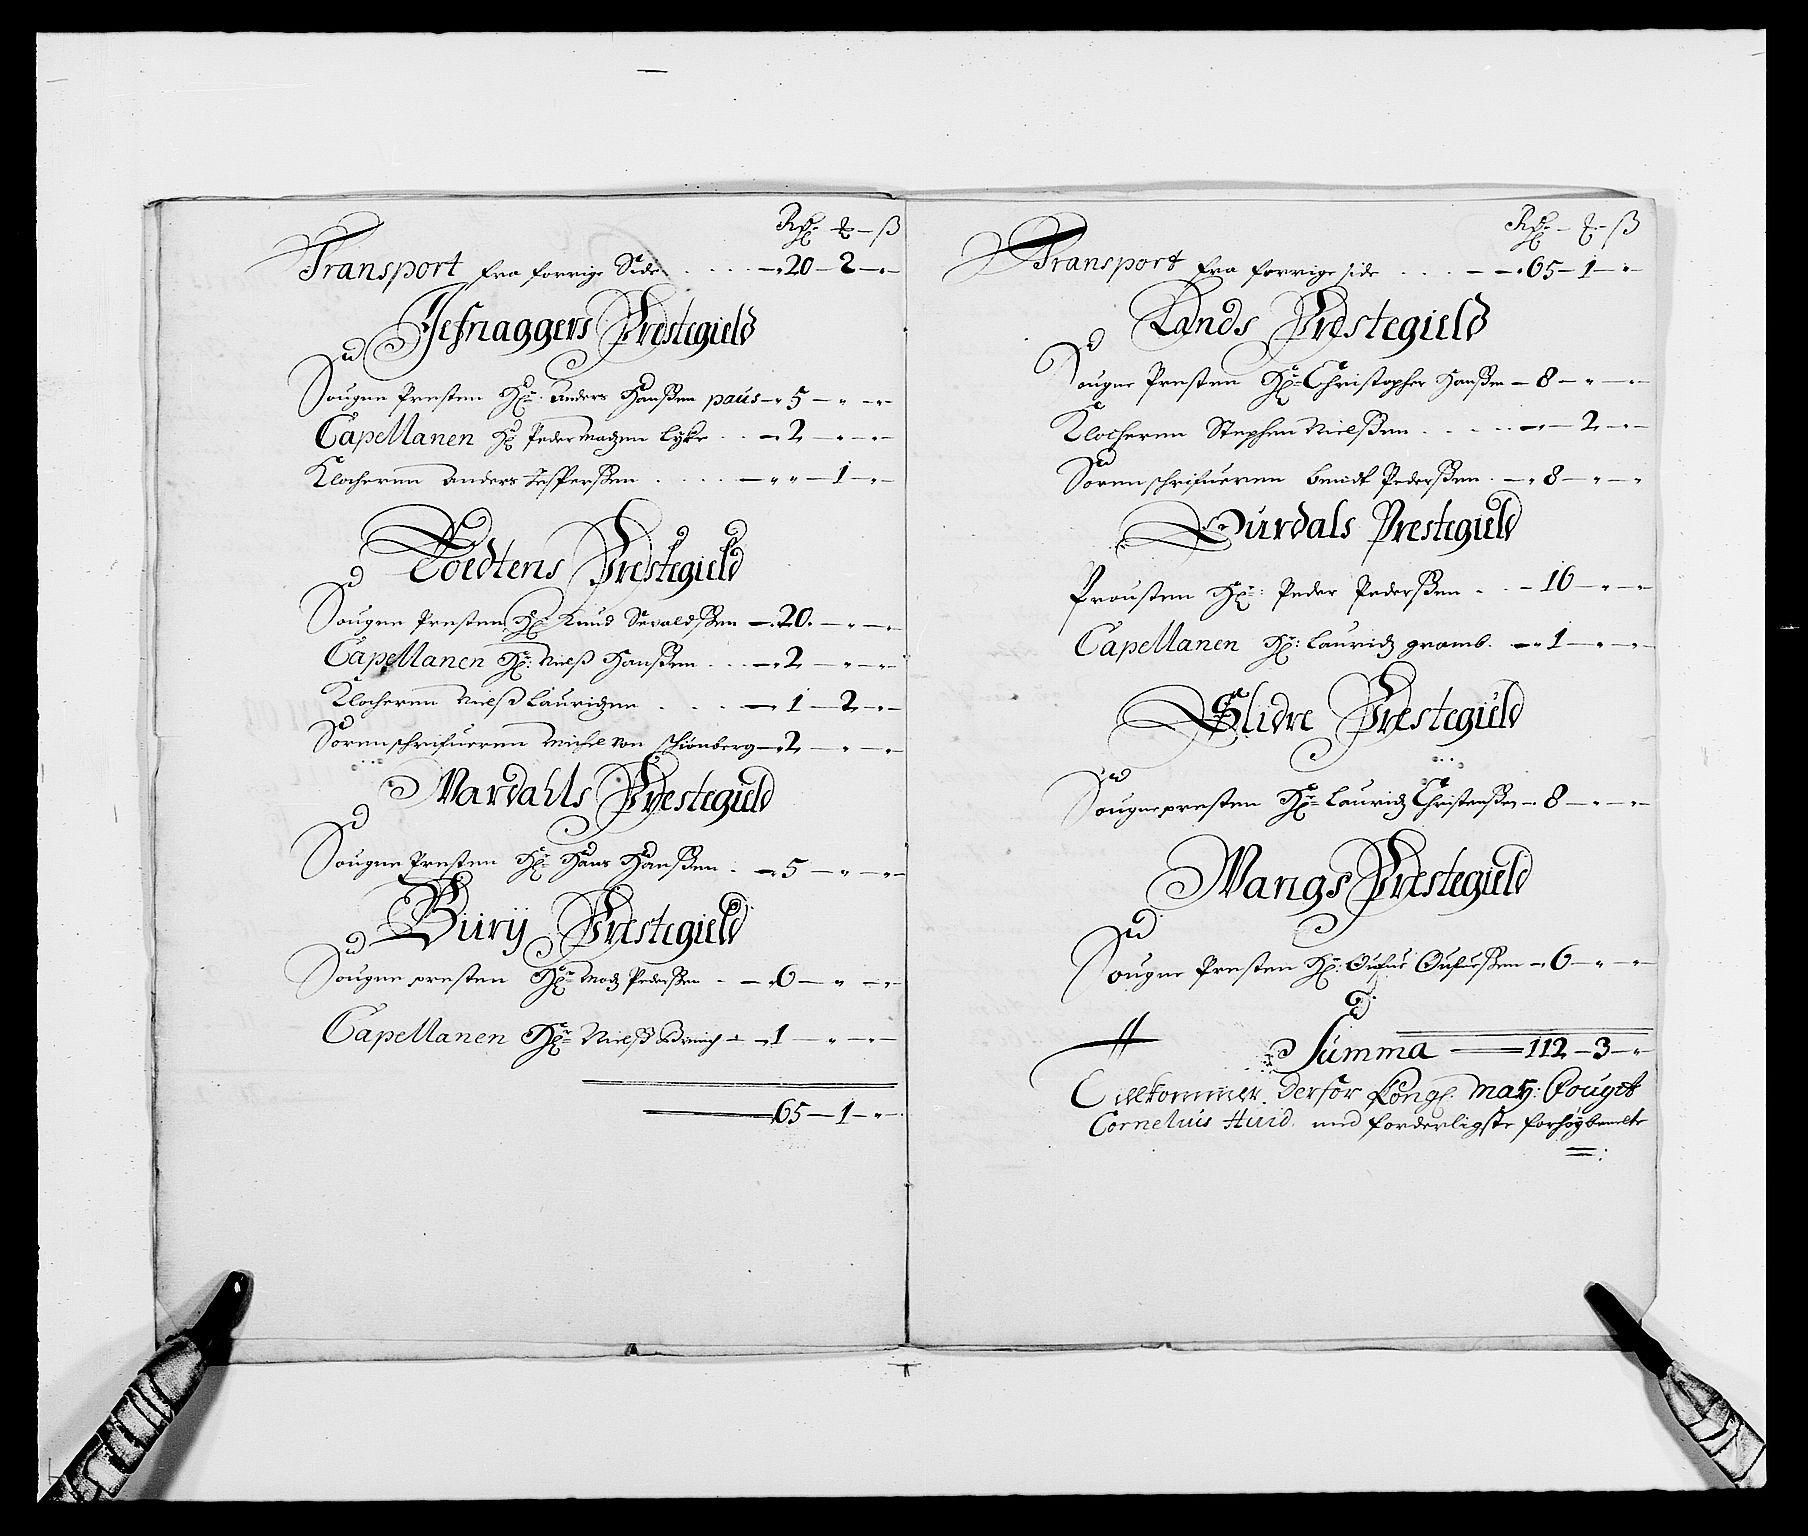 Rdr — ß
Transport fra forrige Side . . . . 20 — 2 —
Jefnaggers Prestegield
Sougne Presten Hr. Anders Hanßen paus — 5 —
Capellanen Hr Peder Madzen Lyke . . . 2 —
Klocheren Anders Jesperßen . . . . . 1 —
Toedtens Prestegield
Sougne Presten Hr Knud Sevaldßen — 20. —
Capellanen Hr: Nielß Hanßen . . . 2 —
Klocheren Nielß Lauridzen . . . . 1 — 2 —
Sorenschrifueren Michel von Schionberg — 2 —
Wardahls Prestegield
Sougne Presten Hr Hans Hanßen . 5 —
Biirij Prestegield
Sougne presten Hr Madz Pederßen — 6 —
Capellanen Hr Nielß — 1 —
65 — 1 —
Rdr — ß
Transport fra forrige side . . . — 65 — 1 —
Lands Prestegield
Sougne Presten Hr Christopher Hanßen — 8 —
Klocheren Stephen Nielßen . . . . . 2 —
Sorenschrifueren Bendt Pederßen . — 8 —
Ourdals Prestegield
Prousten Hr: Peder Pederßen . . — 16 —
Capellanen Hr: Lauridz gramb. — 1 —
Slidre Prestegield
Sougnepresten Hr Lauridz Christenßen — 8 —
Wangs Prestegield
Sougne Presten Hr: Oufue Oufueßen — 6 —
Summa — 112 — 3 —
Tillkommer derfor Kongl. Maÿ: Fougit
Cornelius Huid. med forderligste forhøybemelte